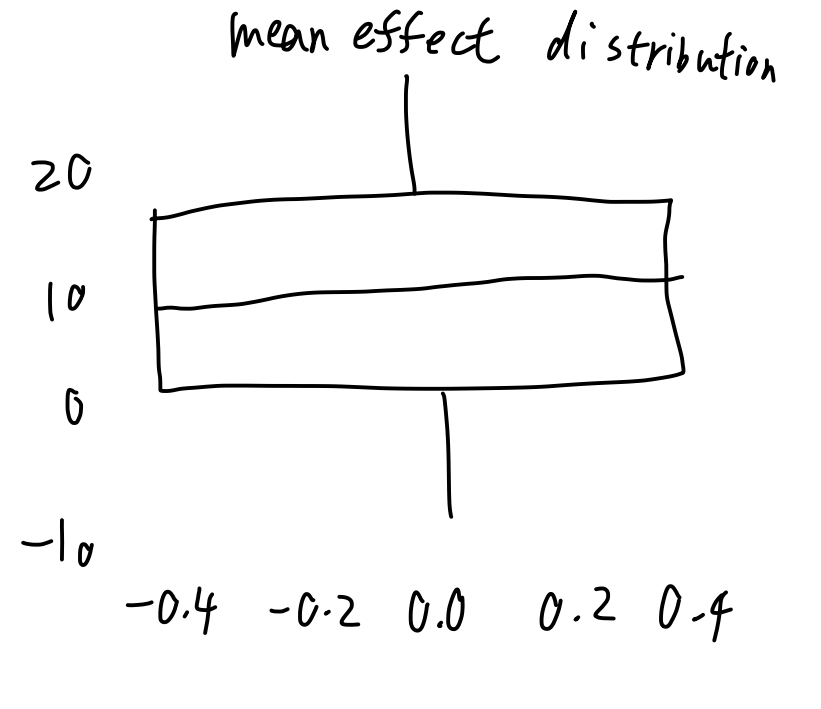 mean effect distribution
20
10
0
-10
-0.4 -0.2 0.0 0.2 0.4